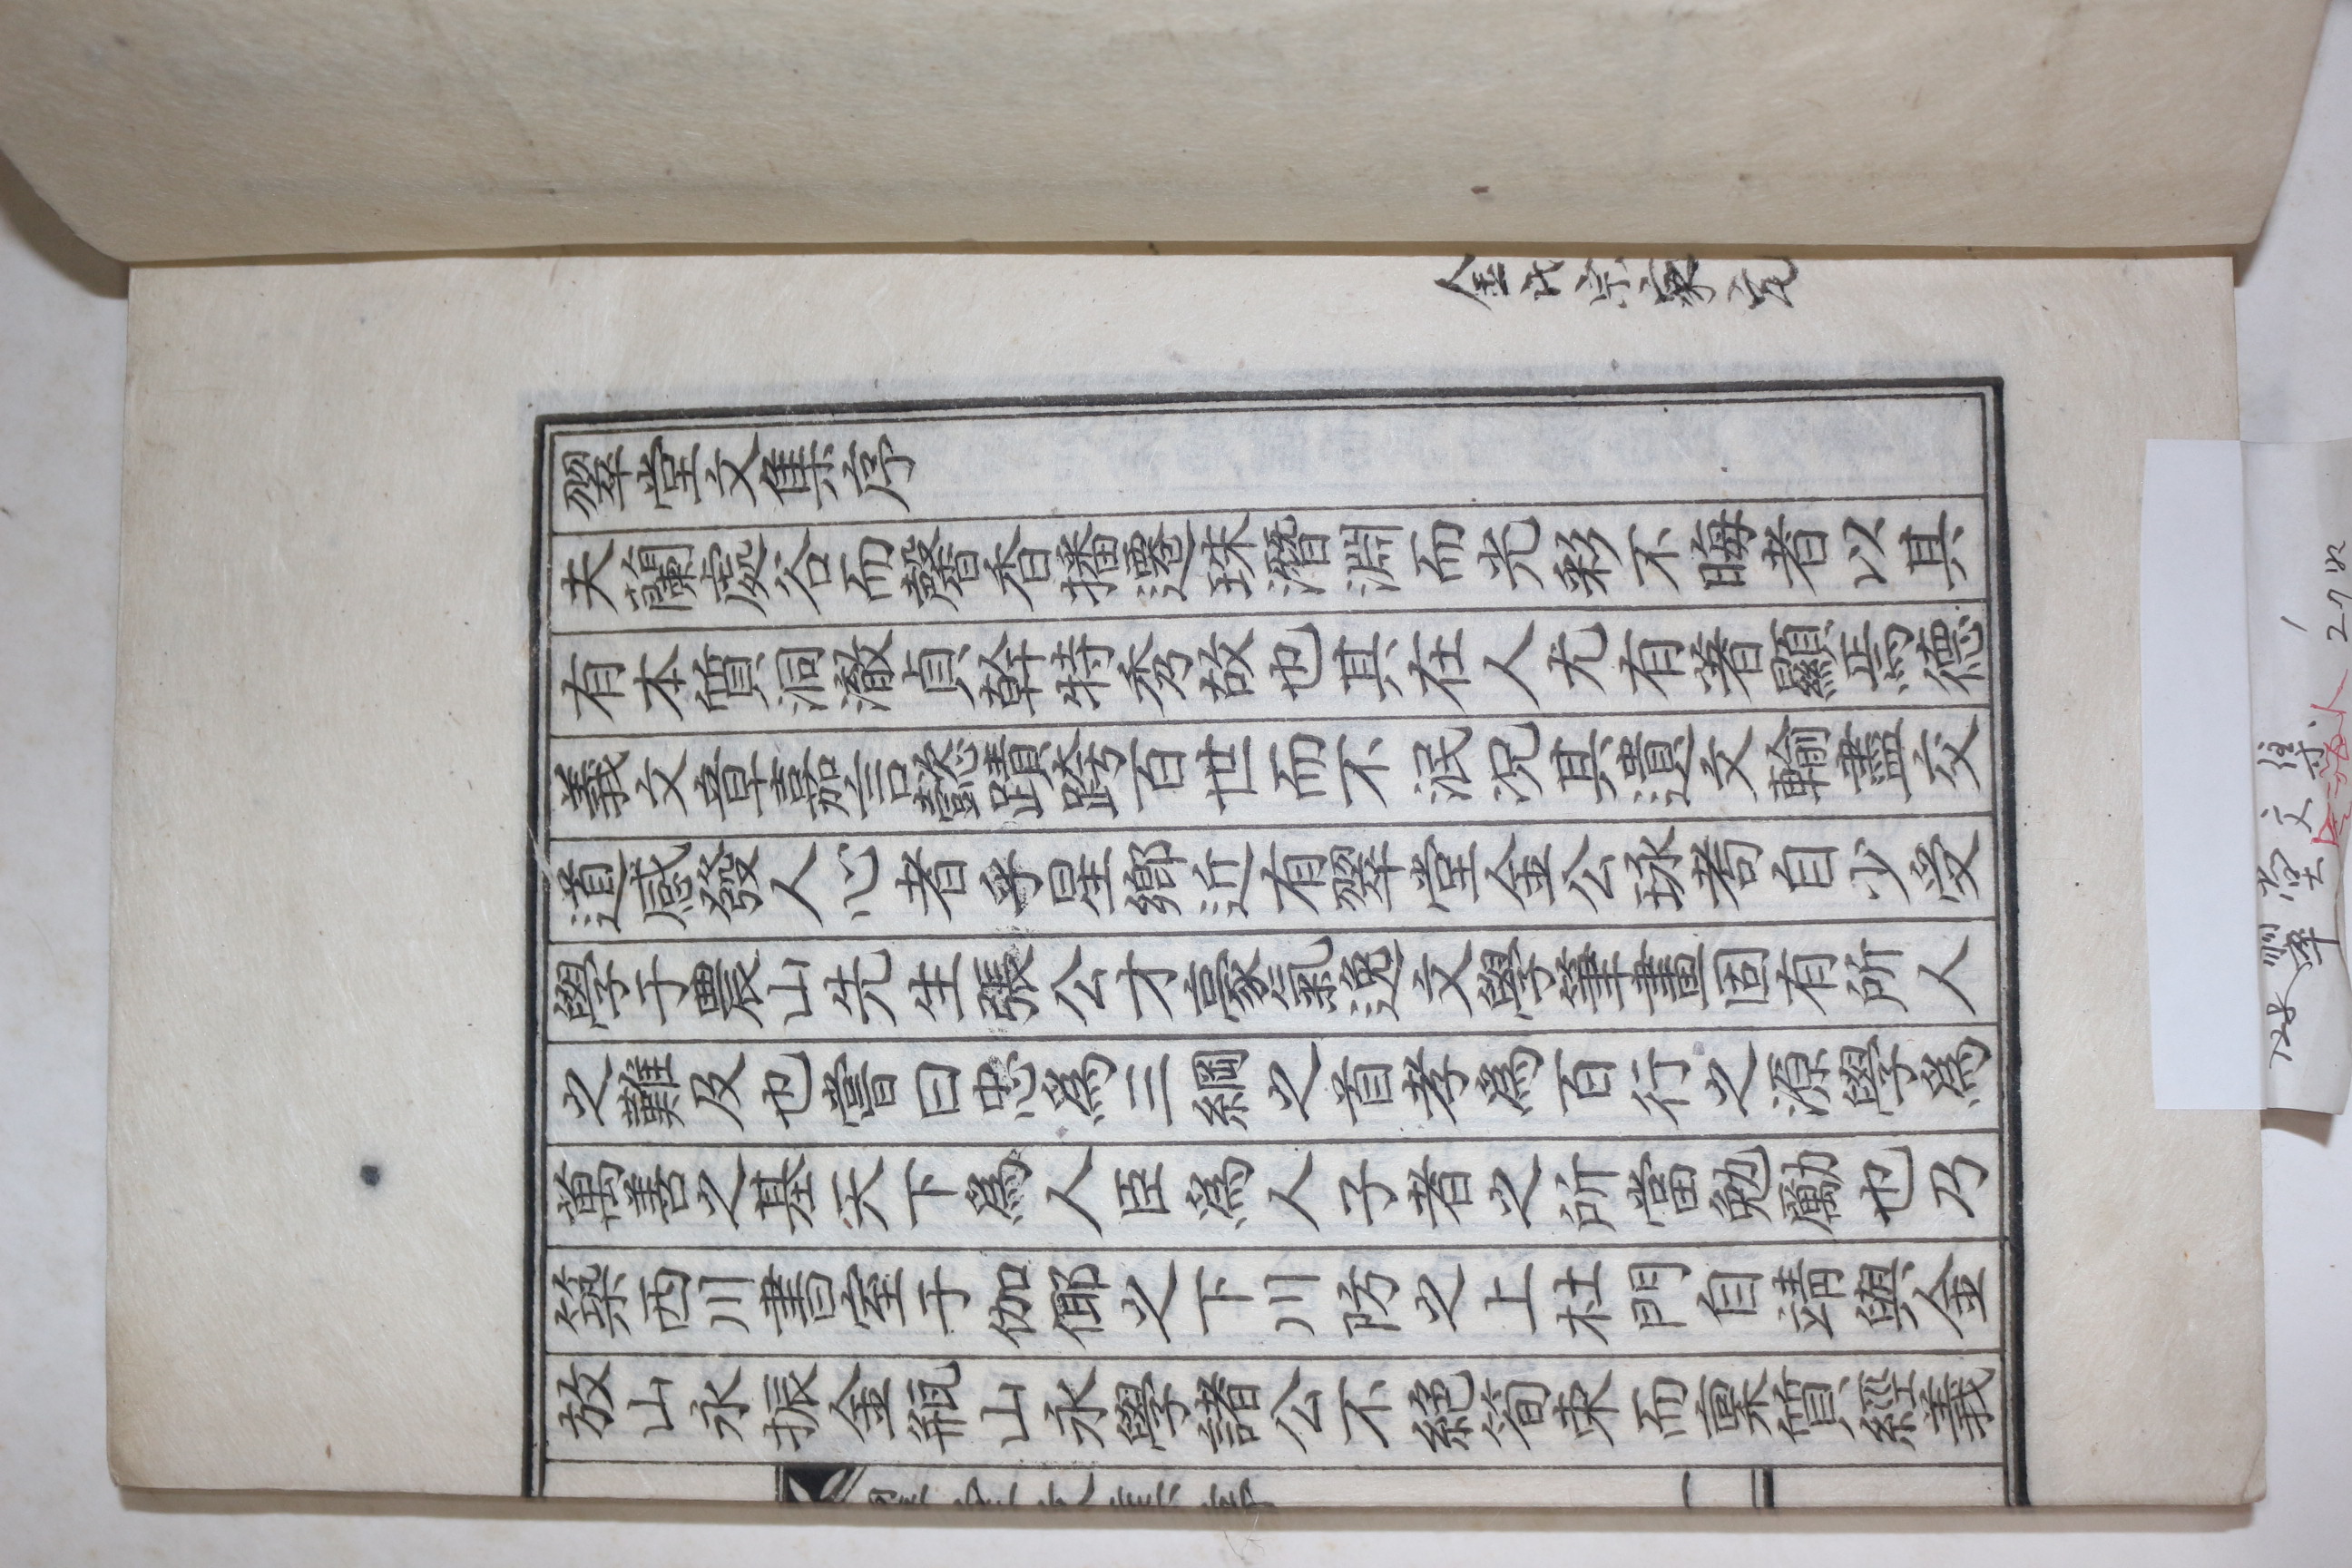 金氏宗案元
翠堂文集序
夫蘭處谷而馨香播邇珠潛淵而光彩不晦者以其
有本質洞澈貞幹特秀故也其在人尤有著顯焉德
義文章嘉言懿蹟跨百世而不泯况其遺文翰墨交
道感發人心者乎星鄕近有翠堂金公琭者自少受
學于農山先生張公才豪氣逸文學筆畫固有所人
之難及也嘗曰忠爲三綱之首孝爲百行之源學爲
萬善之基天下爲人臣爲人子者之所當勉勵也乃
築西川書室于伽倻之下川防之上杜門自靖與金
放山永振金瓶山永學諸公不絕簡束而稟質經義
翠堂文集